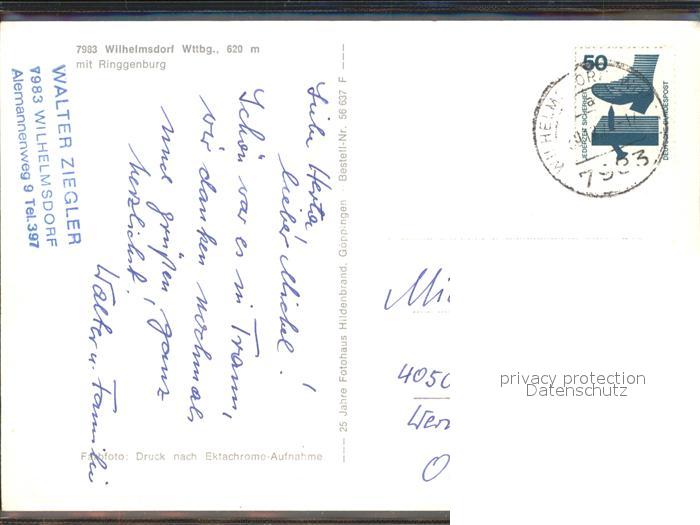 7983 Wilhelmsdorf Wttbg., 620 m
mit Ringgenburg
WALTER ZIEGLER
7983 WILHELMSDORF
Alemannenweg 9 Tel.397
Liebe Herta!
lieber Michel!
Schön war es in Traun,
wir danken nochmals
und grüßen ganz
herzlichst!
Walter u. Familie
Farbfoto: Druck nach Ektachrome-Aufnahme
25 Jahre Fotohaus Hildenbrand, Göppingen Bestell-Nr. 56 637 F
50
JEDERZEIT SICHERHEIT
DEUTSCHE BUNDESPOST
WILHELMSDORF
7983
Mi
4050
O
privacy protection
Datenschutz